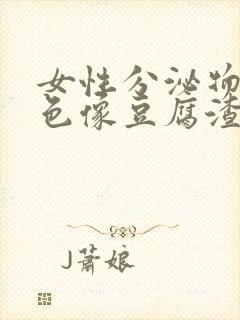 女性分泌物
色像豆腐渣
J蕭娘